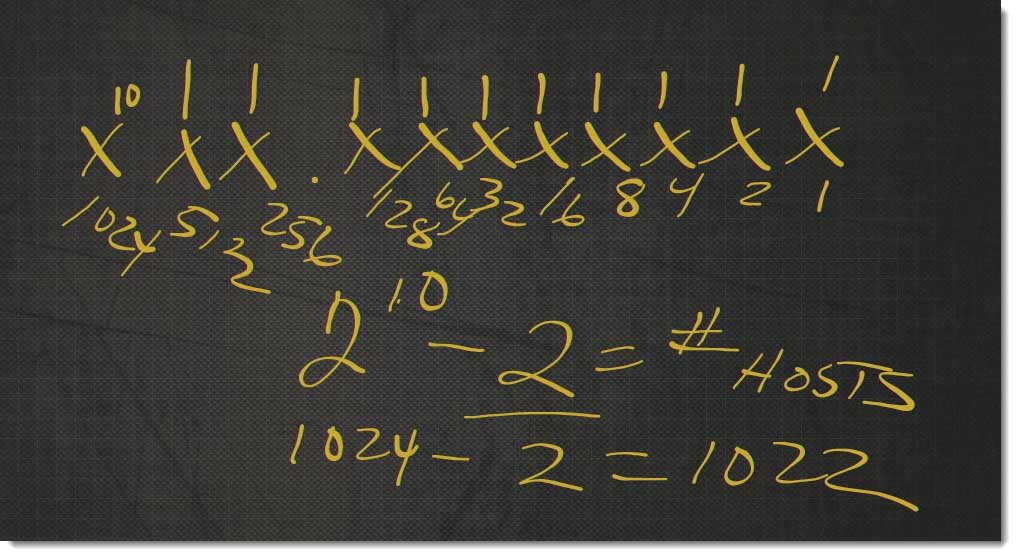 10 1 1 1 1 1 1 1 1 1 1
X X X . X X X X X X X X
1024 512 256 128 64 32 16 8 4 2 1
2^10 - 2 = # HOSTS
1024 - 2 = 1022